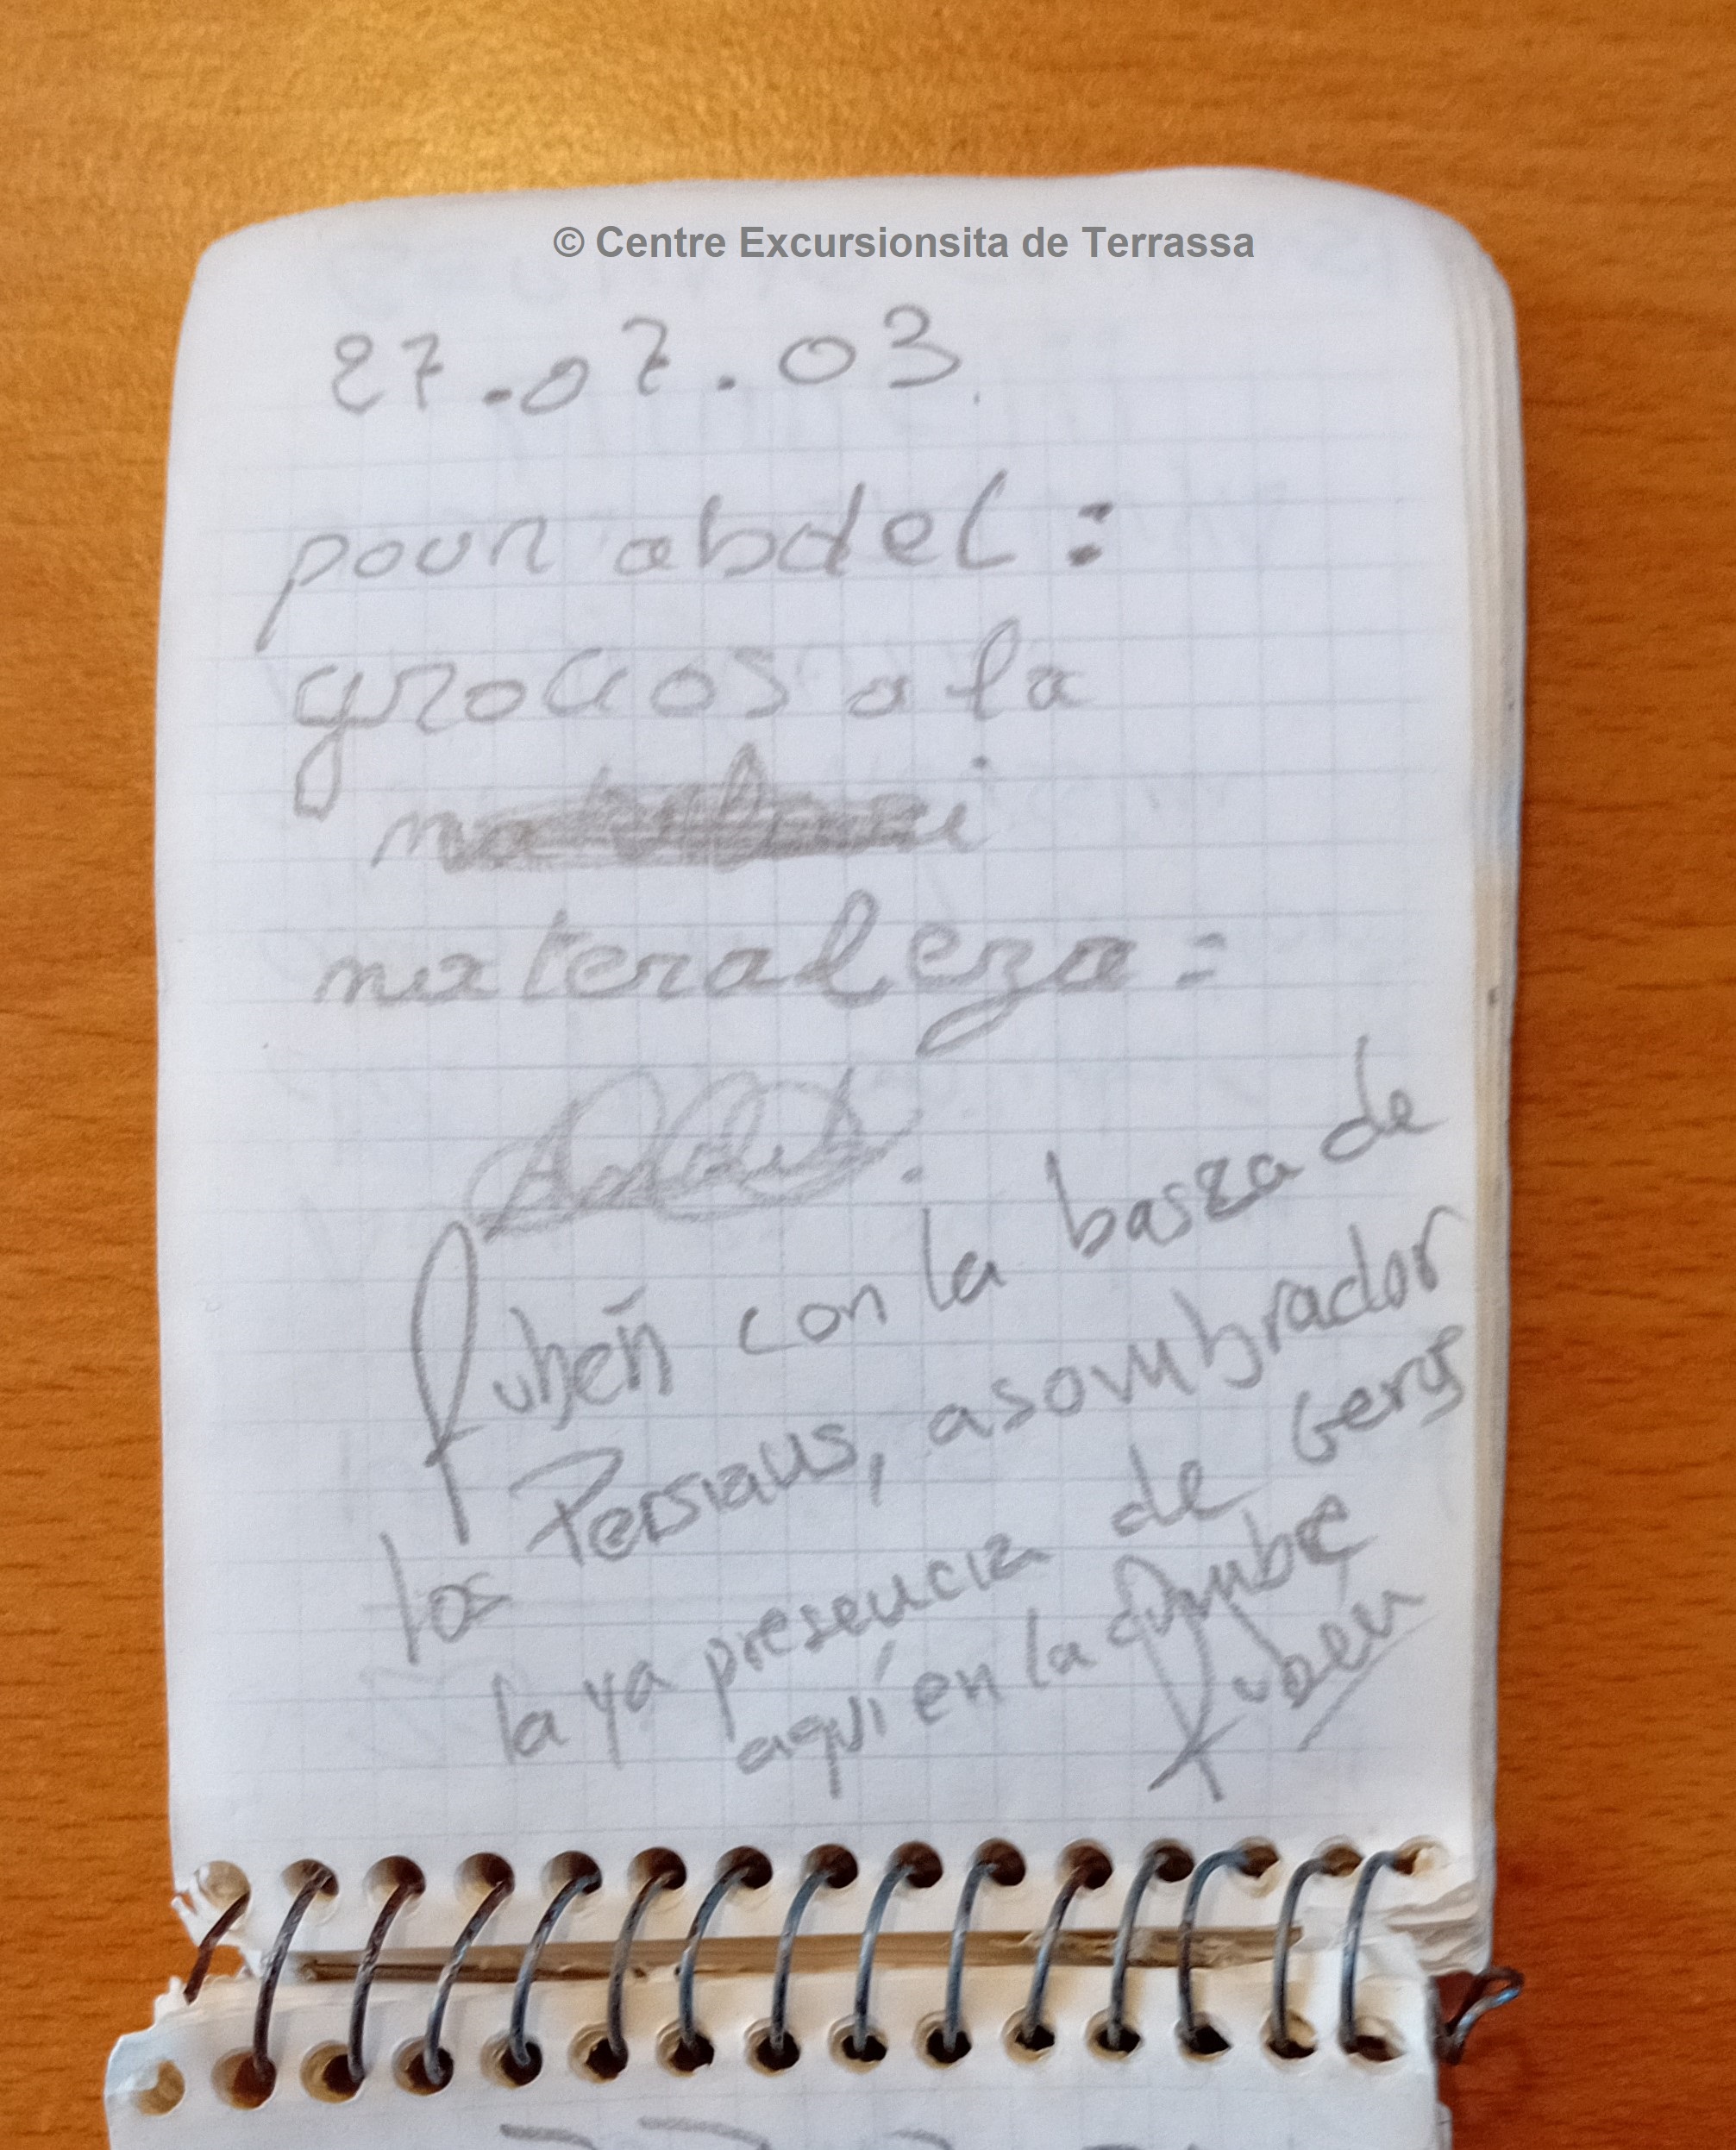 © Centre Excursionsita de Terrassa
27.07.03.
pour abdel :
gracias a la
materaleza =
Rubén con la basza de
los Persiaus, asombrador
la ya presencia de
aquí en la cumbre
Rubén